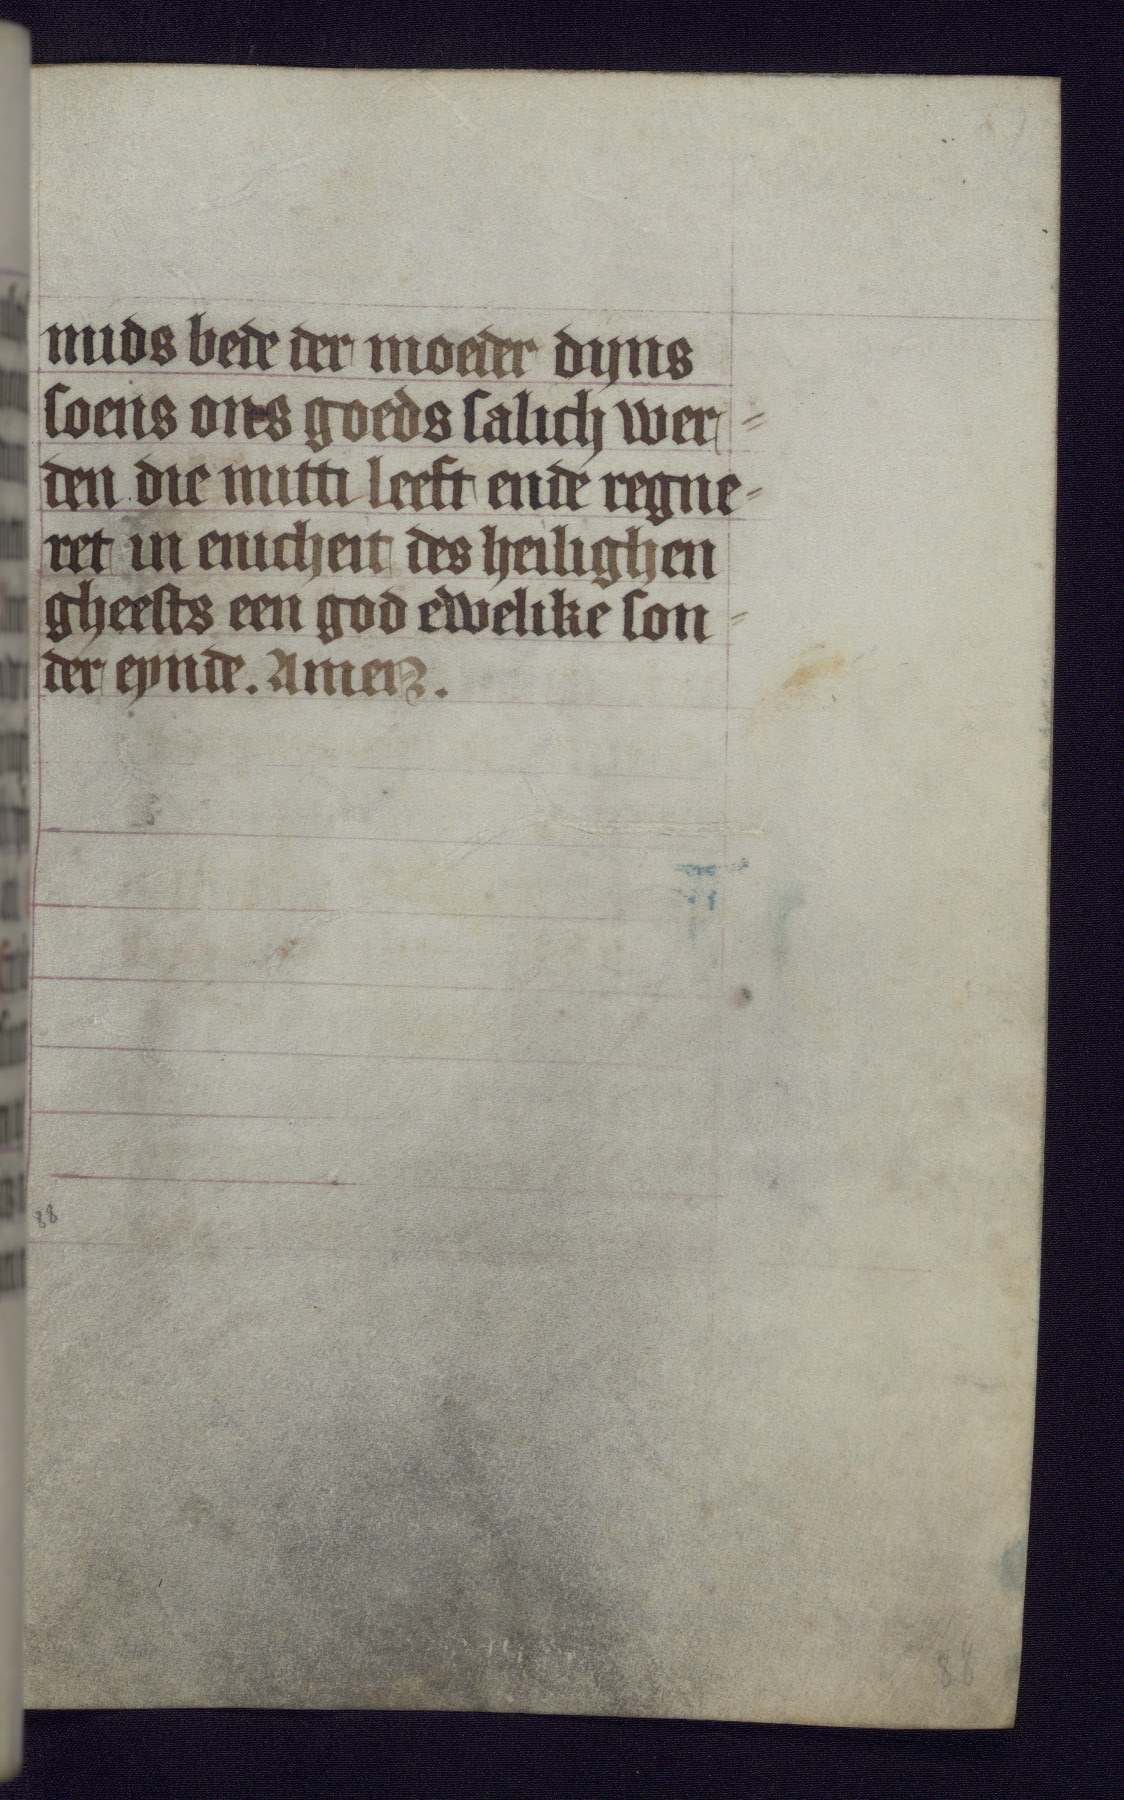 mids bede der moeder dijns
soens ons goeds salich wer=
den die mitti leeft ende regne=
ret in enicheit des heilighen
gheests een god ewelike son=
der eynde. Amen.
88
88